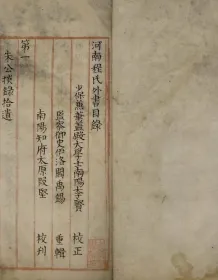 河南程氏外書目錄
少保兼華蓋殿大學士南陽李賢 校正
監察御史伊洛閻禹錫 重輯
南陽知府太原段堅 校刊
第一
朱公掞錄拾遺